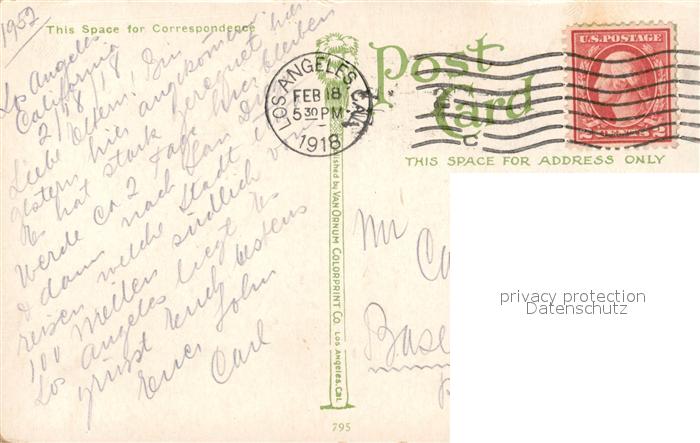 1952
This Space for Correspondence
Los Angeles
California
2/18/18
Liebe Eltern, Bin
gestern hier angekommen
Es hat stark geregnet hier
Werde ca 2 Tage hier bleiben
& dann nach San
reisen welche Stadt
100 Meilen südlich von
Los Angeles liegt. Es
grüsst Euch bestens
Euer Sohn
Carl
Published by VAN ORNUM COLORPRINT CO. LOS ANGELES, CAL.
795
LOS ANGELES, CAL.
FEB 18
5 30 PM
1918
Post
Card
U.S. POSTAGE
2 CENTS 2
THIS SPACE FOR ADDRESS ONLY
Mr Ca
Base
privacy protection
Datenschutz